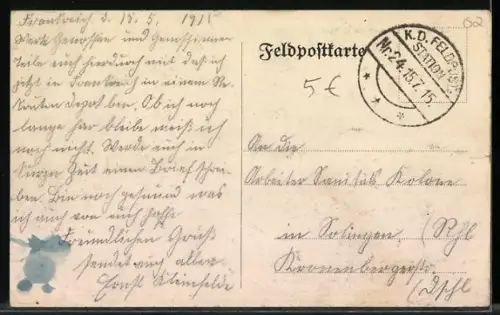 Frankreich d. 18.5. 1915
Werte Genossen und Genossinnen
Teile euch hierdurch mit das ich
jetzt in Frankreich in einem Re-
kruten Depot bin. Ob ich noch
lange hier bleibe weiß ich
noch nicht. Werde euch in
kurzer Zeit einen Brief schrei-
ben. Bin noch gesund was
ich auch von euch hoffe
Freundlichen Gruß
sendet euch allen
Ernst
Feldpostkarte
5 €
K.D. FELDPOST
STATION
Nr. 24 15.7.15.
An die
Arbeiter Sanitäts Kolone
in Solingen. (Rhl
Kronenbergerstr.
(Dschl